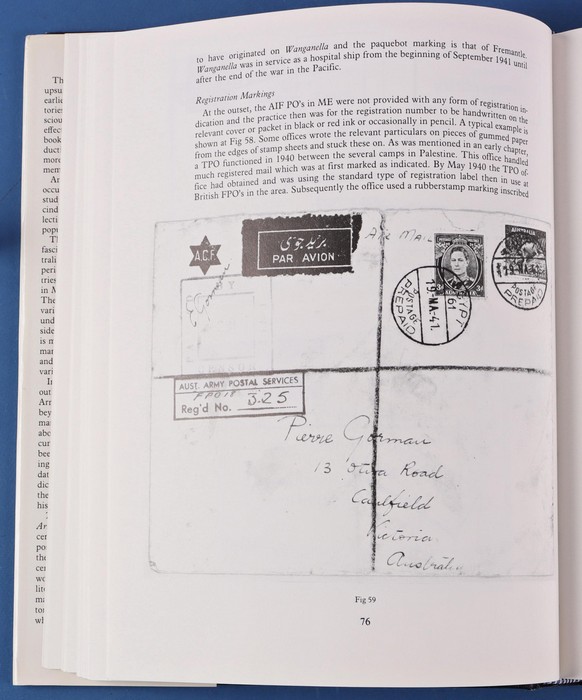 to have originated on Wanganella and the paquebot marking is that of Fremantle.
Wanganella was in service as a hospital ship from the beginning of September 1941 until
after the end of the war in the Pacific.
Registration Markings
At the outset, the AIF PO's in ME were not provided with any form of registration in-
dication and the practice then was for the registration number to be handwritten on the
relevant cover or packet in black or red ink or occasionally in pencil. A typical example is
shown at Fig 58. Some offices wrote the relevant particulars on pieces of gummed paper
from the edges of stamp sheets and stuck these on. As was mentioned in an early chapter,
a TPO functioned in 1940 between the several camps in Palestine. This office handled
much registered mail which was at first marked as indicated. By May 1940 the TPO of-
fice had obtained and was using the standard type of registration label then in use at
British FPO's in the area. Subsequently the office used a rubberstamp marking inscribed
A.C.F.
بريد جوي
PAR AVION
Air Mail
AUSTRALIA
3d 3d
POSTAGE PREPAID
19·MA·41
EGYPT
61
19 MA
POSTAGE
PREPAID
AUST. ARMY POSTAL SERVICES
Reg'd No. 325
Pierre Gorman
13 Road
Caulfield
Victoria
Australia
Fig 59
76